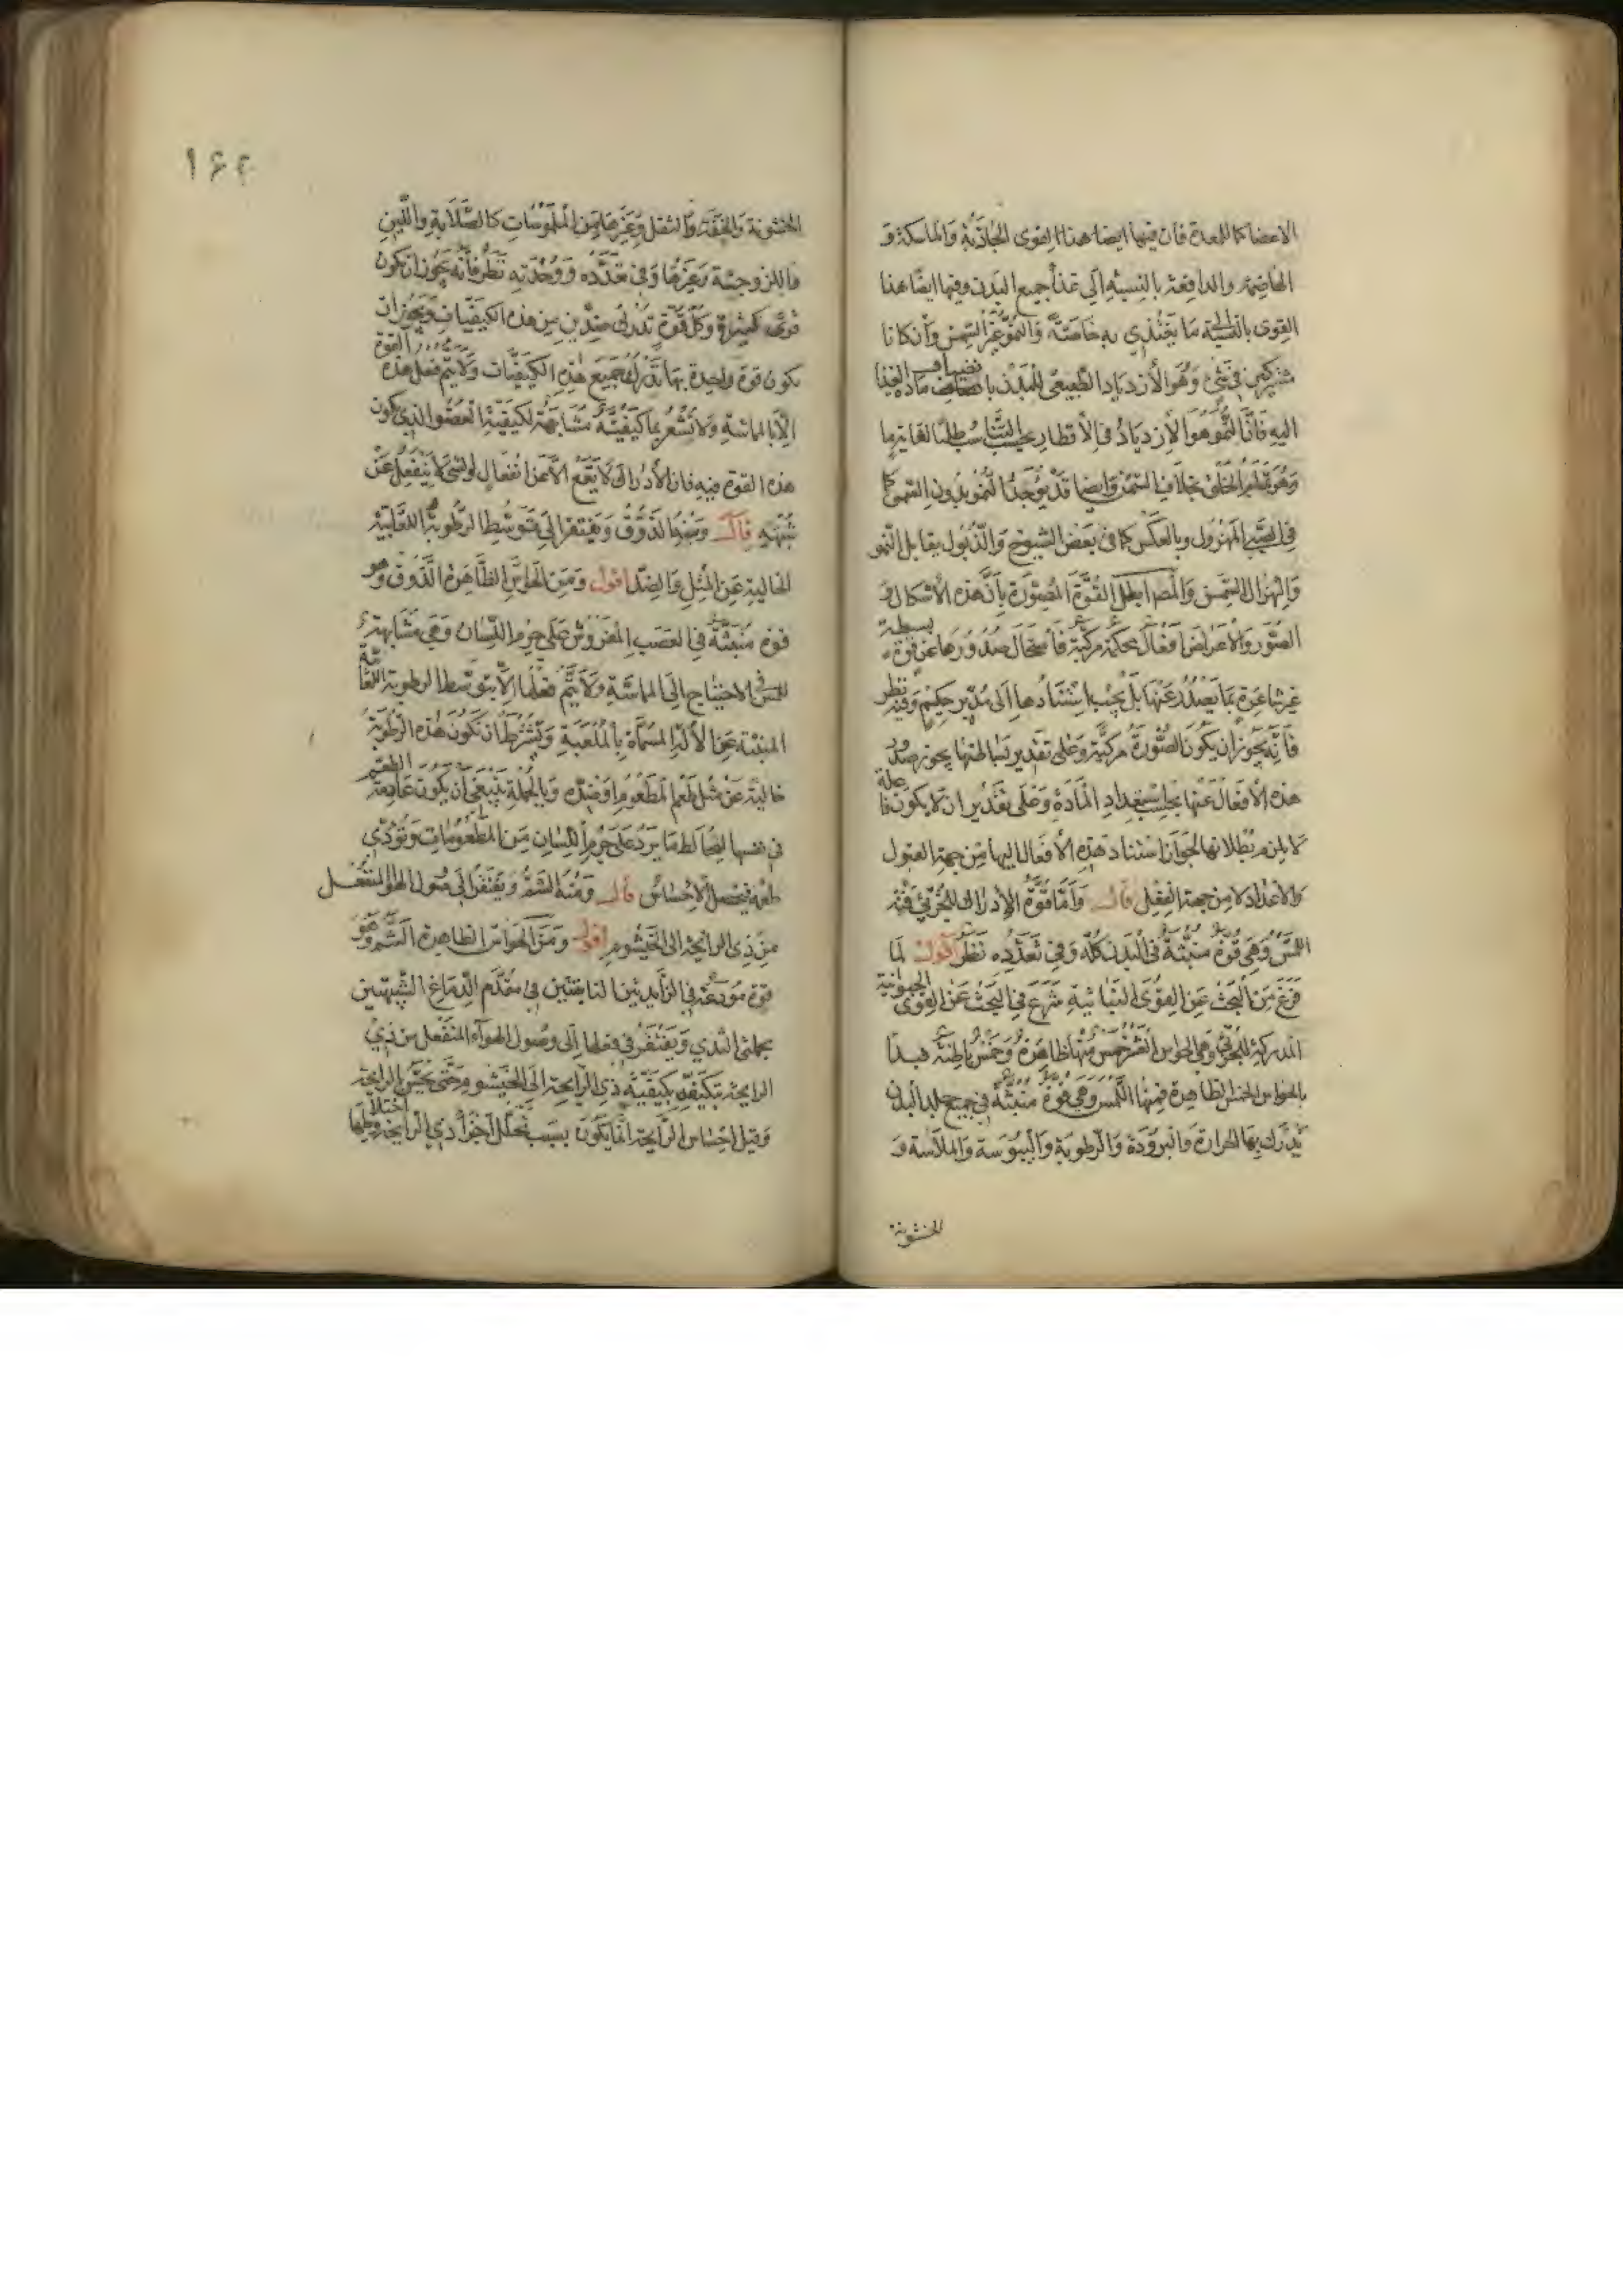 الاعضا كما للمعدة فان فيها ايضا هذا القوى الجاذبة والماسكة و
الهاضمة والدافعة بالنسبة الى غذاء جميع البدن وفيها ايضا هذا
القوى بالنسبة الى ما يغتذى به خاصة والنمو غير السمن وان كانا
مشتركين في شئ وهو الازدياد الطبيعي للبدن بانضياف مادة الغذا
اليه فان النمو هو الازدياد في الاقطار بحسب التناسب طلبا لغاية ما
وهو تمام الخلق بخلاف السمن وايضا قد يوجد النمو بدون السمن كما
في الصبي المهزول وبالعكس كما في بعض الشيوخ والذبول يقابل النمو
والهزال السمن والمص ابطل القوة المصورة بان هذه الاشكال و
الصور والاعراض افعال محكمة مركبة فاستحال صدورها عن قوة بسيطة
غير شاعرة بما يصدر عنها بل يجب استنادها الى مدبر حكيم وفيه نظر
فانه يجوز ان يكون الصورة مركبة وعلى تقدير بساطتها يجوز صدور
هذه الافعال عنها بحسب استعداد المادة وعلى تقدير ان لا يكون فاعلة
لا يلزم بطلانها لجواز استناد هذه الافعال اليها من جهة القبول
والاعداد لا من جهة الفعل قال واما قوة الادراك للجزئي فمنه
اللمس وهي قوة منبثة في البدن كله وفي تعدده نظر اقول لما
فرغ من البحث عن القوى النباتية شرع في البحث عن القوى الحيوانية
المدركة للجزئي وهي الحواس العشر خمس منها ظاهرة وخمس باطنة فبدا
بالحواس الخمس الظاهرة فمنها اللمس وهي قوة منبثة في جميع جلد البدن
يدرك بها الحرارة والبرودة والرطوبة واليبوسة والملاسة و
الخشونة
١۶٢
الخشونة والخفة والثقل وغيرها من الملموسات كالصلابة واللين
واللزوجة وغيرها وفي تعدده ووحدته نظر فانه يجوز ان يكون
قوى كثيرة وكل قوة تدرك ضدين من هذه الكيفيات ويجوز ان
يكون قوة واحدة بها تدرك جميع هذه الكيفيات ولا يتم فعل هذه القوة
الا بالمماسة ولا تشعر بما كيفيته مشابهة لكيفية العضو الذي يكون
هذه القوة فيه فان الادراك لا يقع الا عن انفعال لو الشئ لا ينفعل عن
شبهه قال ومنه الذوق ويفتقر الى توسط الرطوبة اللعابية
الخالية عن المثل والضد اقول ومن الحواس الظاهرة الذوق وهو
قوة منبثة في العصب المفروش على جرم اللسان وهي مشابهة
للمس في الاحتياج الى المماسة ولا يتم فعلها الا بتوسط الرطوبة اللعابية
المنبثة عن الآلة المسماة بالملعبة ويشترط ان تكون هذه الرطوبة
خالية عن مثل طعم المطعوم او ضده وبالجملة ينبغي ان يكون عادمة الطعم
في نفسها ليخالط ما يرد على جرم اللسان من المطعومات وتؤدي
طعمه فيحصل الاحساس قال ومنه الشم ويفتقر الى وصول الهواء المنفعل
من ذي الرايحة الى الخيشوم اقول ومن الحواس الظاهرة الشم وهو
قوة مودعة في الزايدتين النابتتين في مقدم الدماغ الشبيهتين
بحلمتي الثدي ويفتقر في فعلها الى وصول الهواء المنفعل من ذي
الرايحة بتكيفه بكيفية ذي الرايحة الى الخيشوم حتى يحس الرايحة
وقيل احساس الرايحة انما يكون بسبب تحلل اجزاء ذي الرايحة واختلاطها